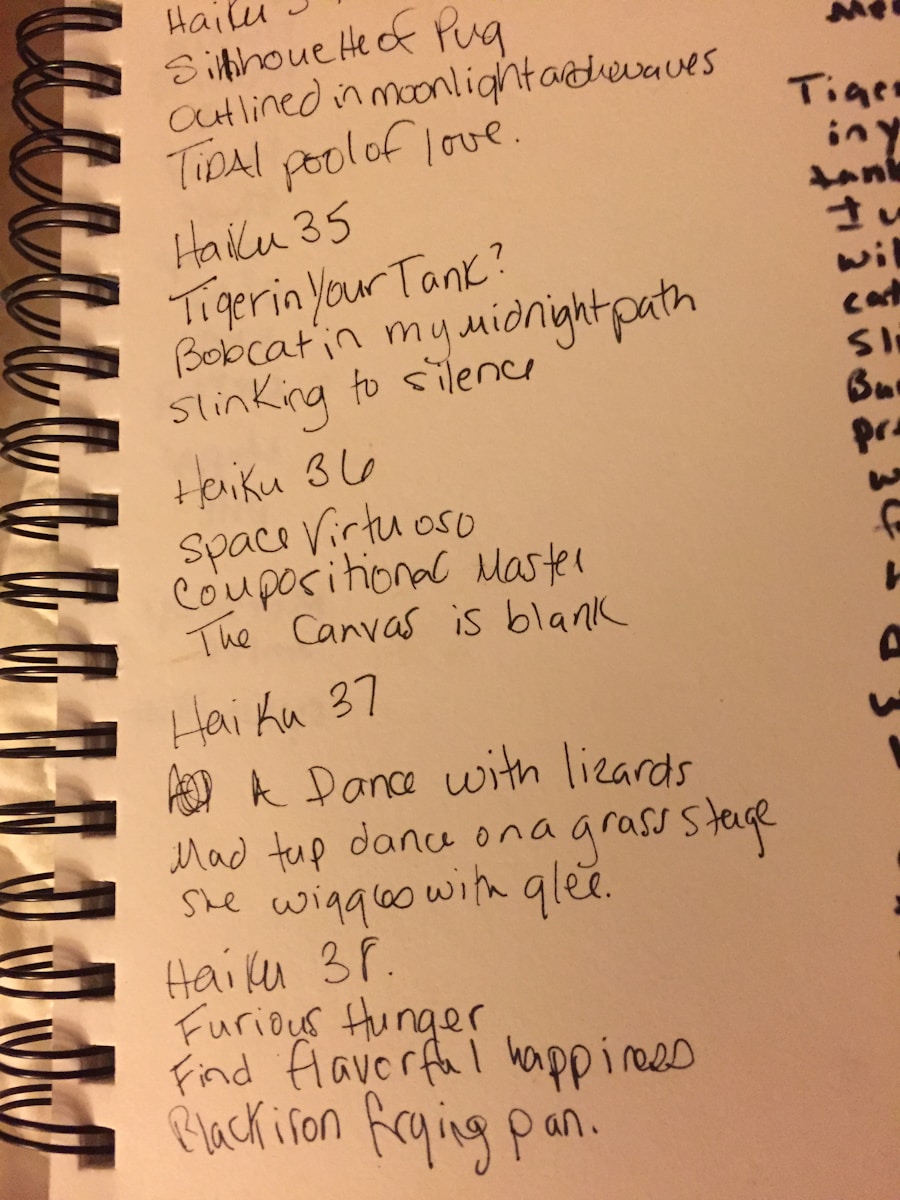 Haiku 3
Sillhouette of Pug
outlined in moonlight and waves
TIDAl pool of love.
Haiku 35
Tiger in Your Tank?
Bobcat in my midnight path
slinking to silence
Haiku 36
Space Virtuoso
Compositional Master
The Canvas is blank
Haiku 37
A Dance with lizards
Mad tap dance on a grass stage
She wiggles with glee.
Haiku 38.
Furious Hunger
Find flavorful happiness
Black iron frying pan.
Tiger
in y
tank
I w
wil
cat
sli
Bu
pr
w